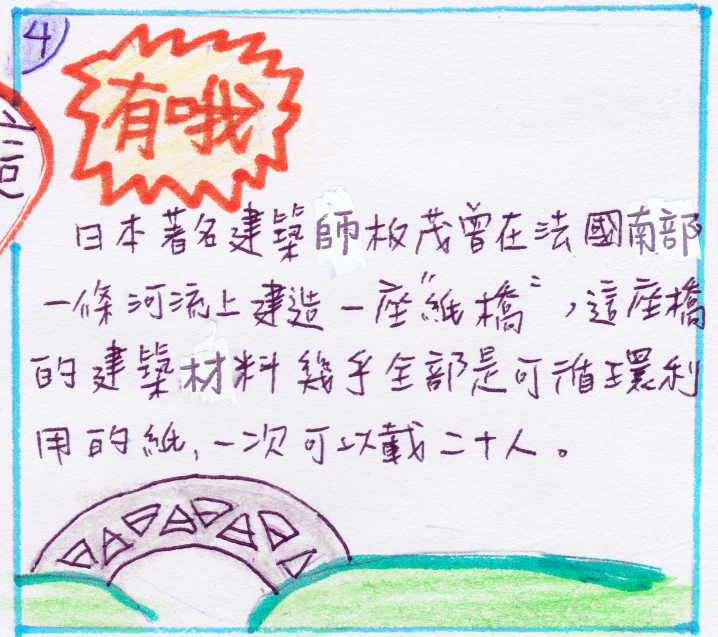 4
有哦
日本著名建築師板茂曾在法國南部
一條河流上建造一座"紙橋",這座橋
的建築材料幾乎全部是可循環利
用的紙,一次可以載二十人。